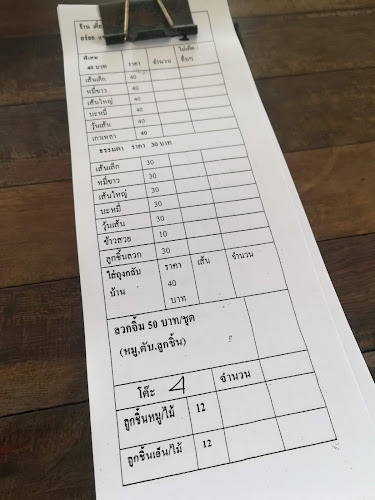 ร้าน
อร่อย
พิเศษ
40 บาท ราคา จำนวน ไม่เผ็ด/อื่นๆ
เส้นเล็ก 40
หมี่ขาว 40
เส้นใหญ่ 40
บะหมี่ 40
วุ้นเส้น 40
เกาเหลา 40
ธรรมดา ราคา 30 บาท
เส้นเล็ก 30
หมี่ขาว 30
เส้นใหญ่ 30
บะหมี่ 30
วุ้นเส้น 30
ข้าวสวย 10
ลูกชิ้นลวก 30
ใส่ถุงกลับ ราคา เส้น จำนวน
บ้าน 40
บาท
ลวกจิ้ม 50 บาท/ชุด
(หมู,ตับ.ลูกชิ้น)
โต๊ะ 4 จำนวน
ลูกชิ้นหมู/ไม้ 12
ลูกชิ้นเอ็น/ไม้ 12